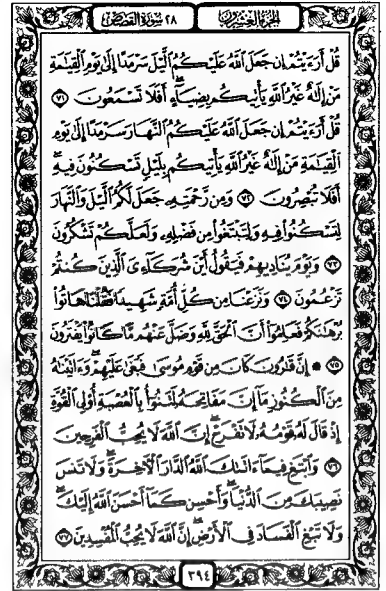 الجُزْءُ العِشْرُونَ
٢٨ سُورَةُ القَصَصِ
قُلْ أَرَءَيْتُمْ إِن جَعَلَ ٱللَّهُ عَلَيْكُمُ ٱلَّيْلَ سَرْمَدًا إِلَىٰ يَوْمِ ٱلْقِيَٰمَةِ
مَنْ إِلَٰهٌ غَيْرُ ٱللَّهِ يَأْتِيكُم بِضِيَآءٍ ۖ أَفَلَا تَسْمَعُونَ ٧١
قُلْ أَرَءَيْتُمْ إِن جَعَلَ ٱللَّهُ عَلَيْكُمُ ٱلنَّهَارَ سَرْمَدًا إِلَىٰ يَوْمِ
ٱلْقِيَٰمَةِ مَنْ إِلَٰهٌ غَيْرُ ٱللَّهِ يَأْتِيكُم بِلَيْلٍ تَسْكُنُونَ فِيهِ ۖ
أَفَلَا تُبْصِرُونَ ٧٢ وَمِن رَّحْمَتِهِۦ جَعَلَ لَكُمُ ٱلَّيْلَ وَٱلنَّهَارَ
لِتَسْكُنُوا۟ فِيهِ وَلِتَبْتَغُوا۟ مِن فَضْلِهِۦ وَلَعَلَّكُمْ تَشْكُرُونَ
٧٣ وَيَوْمَ يُنَادِيهِمْ فَيَقُولُ أَيْنَ شُرَكَآءِىَ ٱلَّذِينَ كُنتُمْ
تَزْعُمُونَ ٧٤ وَنَزَعْنَا مِن كُلِّ أُمَّةٍ شَهِيدًا فَقُلْنَا هَاتُوا۟
بُرْهَٰنَكُمْ فَعَلِمُوٓا۟ أَنَّ ٱلْحَقَّ لِلَّهِ وَضَلَّ عَنْهُم مَّا كَانُوا۟ يَفْتَرُونَ
٧٥ ۞ إِنَّ قَٰرُونَ كَانَ مِن قَوْمِ مُوسَىٰ فَبَغَىٰ عَلَيْهِمْ ۖ وَءَاتَيْنَٰهُ
مِنَ ٱلْكُنُوزِ مَآ إِنَّ مَفَاتِحَهُۥ لَتَنُوٓأُ بِٱلْعُصْبَةِ أُو۟لِى ٱلْقُوَّةِ
إِذْ قَالَ لَهُۥ قَوْمُهُۥ لَا تَفْرَحْ ۖ إِنَّ ٱللَّهَ لَا يُحِبُّ ٱلْفَرِحِينَ
٧٦ وَٱبْتَغِ فِيمَآ ءَاتَىٰكَ ٱللَّهُ ٱلدَّارَ ٱلْءَاخِرَةَ ۖ وَلَا تَنسَ
نَصِيبَكَ مِنَ ٱلدُّنْيَا ۖ وَأَحْسِن كَمَآ أَحْسَنَ ٱللَّهُ إِلَيْكَ ۖ
وَلَا تَبْغِ ٱلْفَسَادَ فِى ٱلْأَرْضِ ۖ إِنَّ ٱللَّهَ لَا يُحِبُّ ٱلْمُفْسِدِينَ ٧٧
٣٩٤